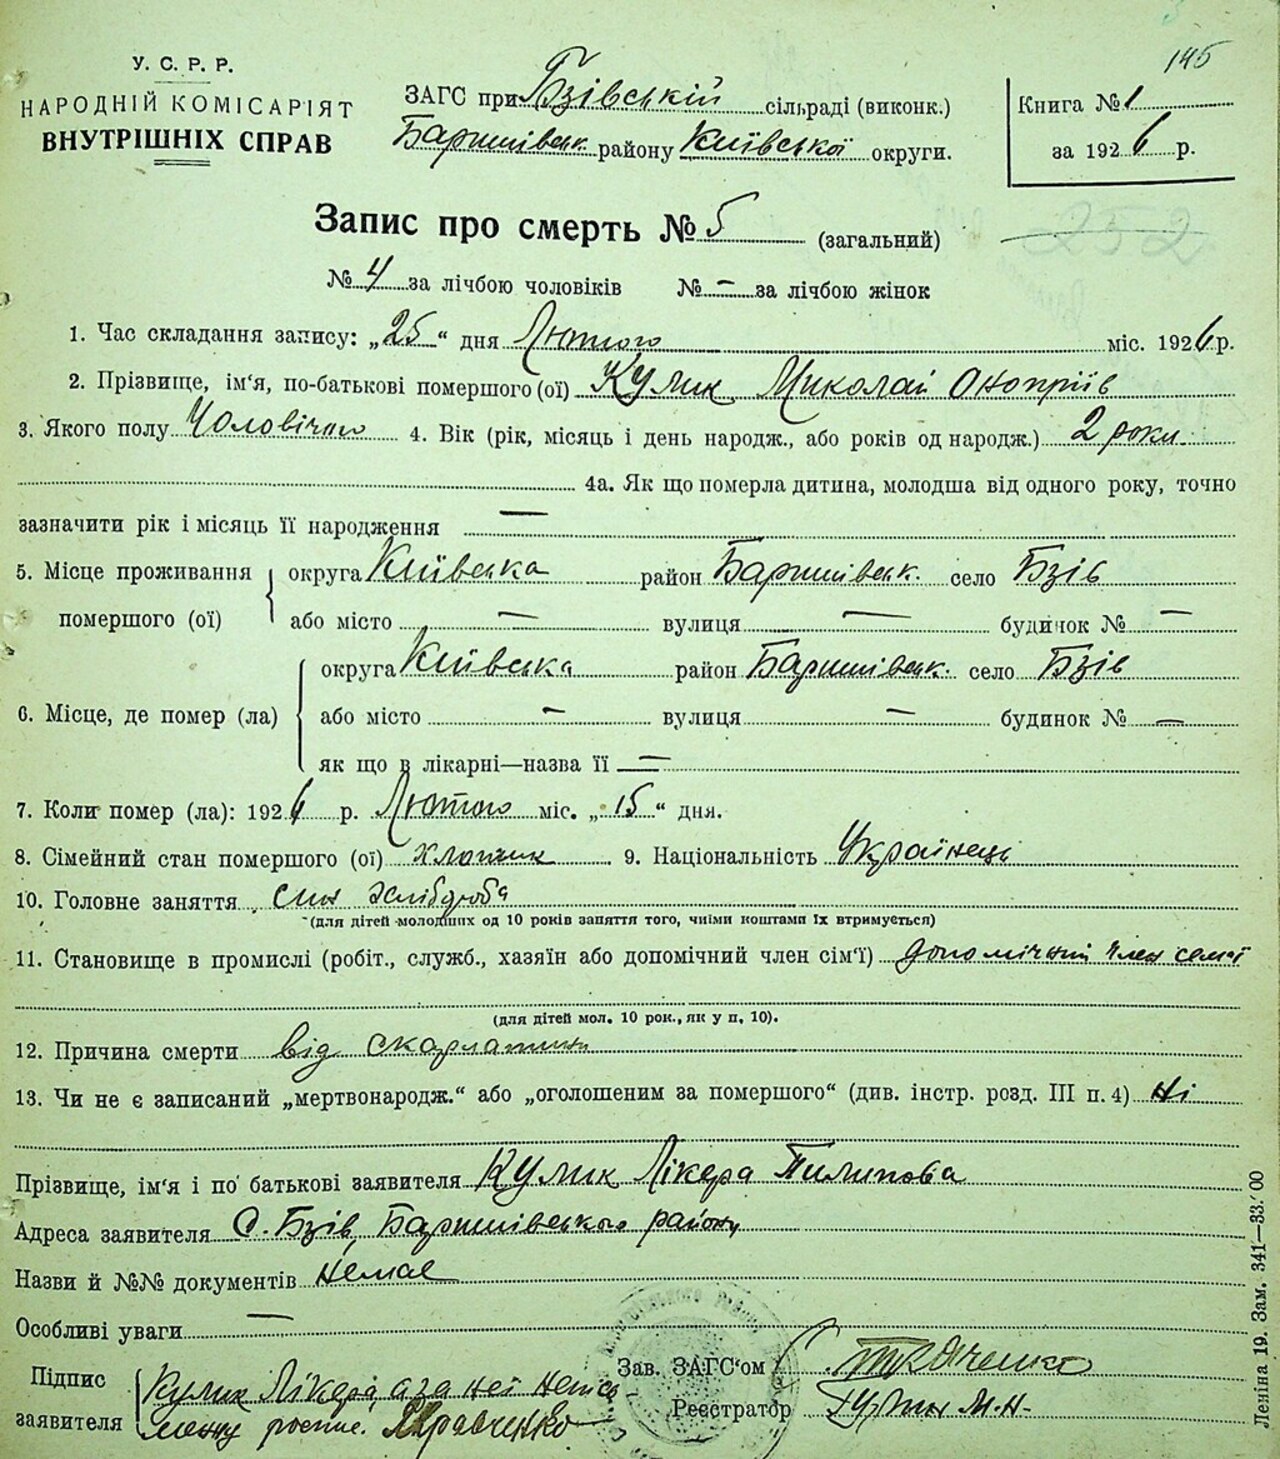 145
У. С. Р. Р.
НАРОДНІЙ КОМІСАРІЯТ
ВНУТРІШНІХ СПРАВ
ЗАГС при Бзівській сільраді (виконк.)
Баришівськ. району Київської округи.
Книга № 1
за 1926 р.
Запис про смерть № 5 (загальний)
252
№ 4 за лічбою чоловіків № – за лічбою жінок
1. Час складання запису: „25“ дня Лютого міс. 1926 р.
2. Прізвище, ім‘я, по-батькові помершого (ої) Кулик Миколай Оноприїв
3. Якого полу Чоловічого 4. Вік (рік, місяць і день народж., або років од народж.) 2 роки
4а. Як що померла дитина, молодша від одного року, точно
зазначити рік і місяць її народження —
5. Місце проживання помершого (ої) округа Київська район Баришівськ. село Бзів
або місто — вулиця — будинок № —
6. Місце, де помер (ла) округа Київська район Баришівськ. село Бзів
або місто – вулиця — будинок № —
як що в лікарні—назва її —
7. Коли помер (ла): 1926 р. Лютого міс. „15“ дня.
8. Сімейний стан помершого (ої) хлопчик 9. Національність Українець
10. Головне заняття син хлібороба
(для дітей молодших од 10 років заняття того, чиїми коштами їх втримується)
11. Становище в промислі (робіт., служб., хазяїн або допомічний член сім‘ї) допомічний член семї
(для дітей мол. 10 рок., як у п. 10).
12. Причина смерти від скарлатини
13. Чи не є записаний „мертвонародж.“ або „оголошеним за помершого“ (див. інстр. розд. III п. 4) Ні
Прізвище, ім‘я і по батькові заявителя Кулик Лікера Пилипова
Адреса заявителя С. Бзів, Баришівського району
Назви й №№ документів немає
Особливі уваги —
Підпис заявителя Кулик Лікера, а за неї непись-
менну роспис. Кравченко
Зав. ЗАГС‘ом Ткаченко
Реєстратор М. Н.
Леніна 19. Зам. 341—33.000